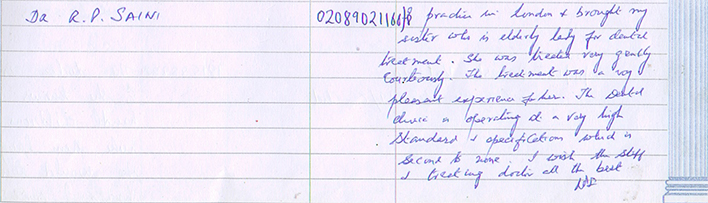 DR R. P. SAINI 02089021166 I practice in London & brought my
sister who is elderly lady for dental
treatment. She was treated very gently
Courteously. The treatment was a very
pleasant experience for her. The Dental
clinic is operating at a very high
Standard & specifications which is
second to none I wish the staff
& treating doctor all the best